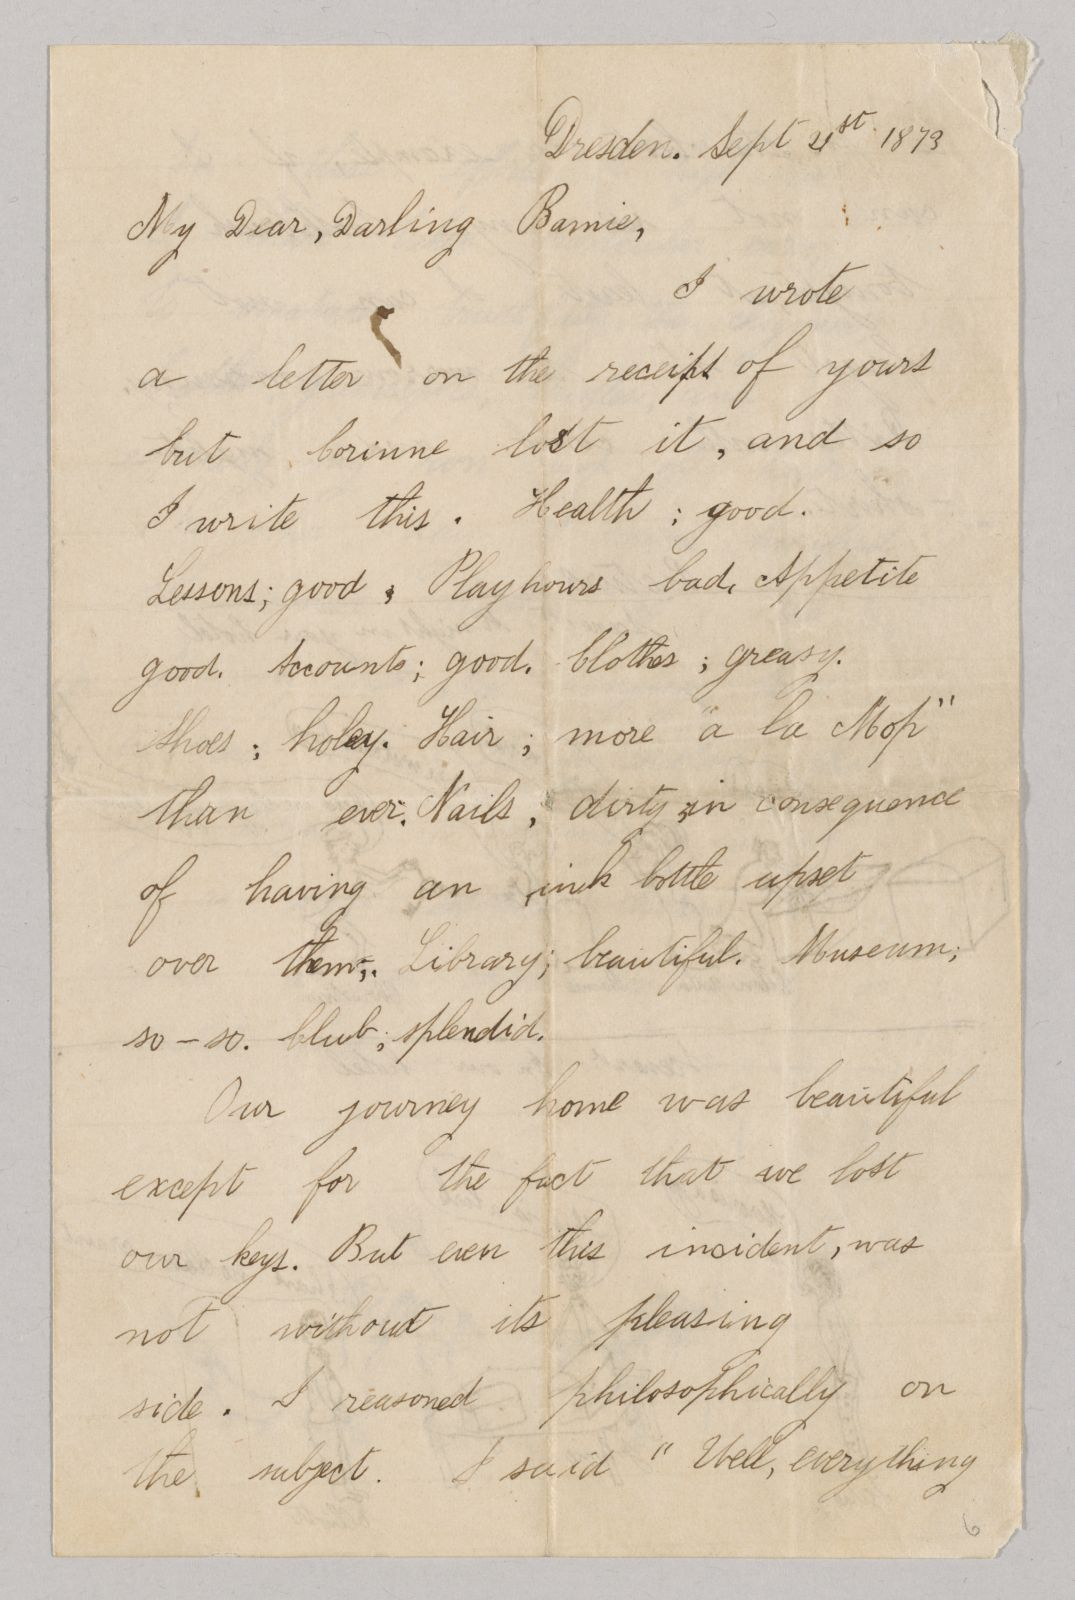 Dresden. Sept 21st 1873
My Dear, Darling Bamie,
I wrote
a letter on the receipt of yours
but Corinne lost it, and so
I write this. Health; good.
Lessons; good. Playhours bad. Appetite
good. Accounts; good. Clothes; greasy.
Shoes; holey. Hair; more "a la Mop"
than ever. Nails; dirty, in consequence
of having an ink bottle upset
over them;. Library; beautiful. Museum;
so-so. Club; splendid.
Our journey home was beautiful
except for the fact that we lost
our keys. But even this incident, was
not without its pleasing
side. I reasoned philosophically on
the subject. I said "Well, everything
6